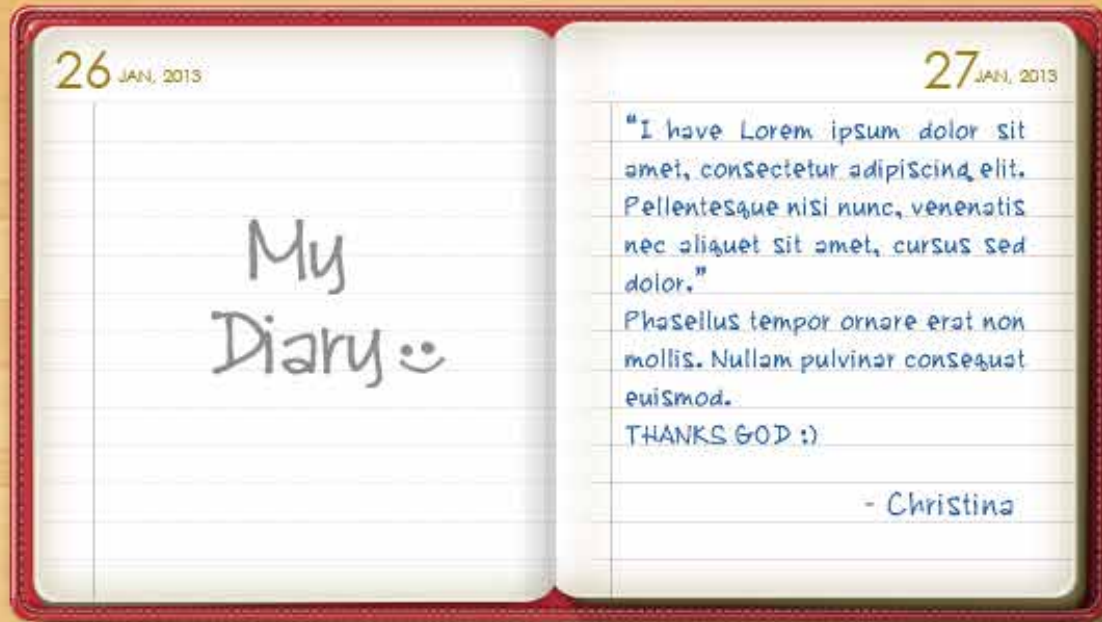 26 JAN, 2013
My
Diary :)
27 JAN, 2013
"I have Lorem ipsum dolor sit
amet, consectetur adipiscing elit.
Pellentesque nisi nunc, venenatis
nec aliquet sit amet, cursus sed
dolor."
Phasellus tempor ornare erat non
mollis. Nullam pulvinar consequat
euismod.
THANKS GOD :)
- Christina